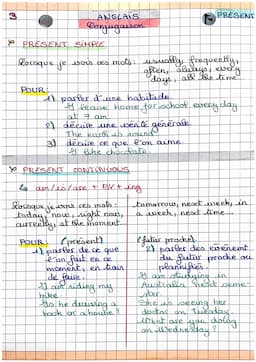 3
ANGLAIS
Conjugaison
PRESENT
PRESENT SIMPLE
Lorsque je vois ces mots: usually, frequently,
often, always, every
days, all the time
POUR:
1) parler d'une habitude.
I leave home for school every day
at 7 am
2) décrire une vérité générale
The earth is round
3) décrire ce que l'on aime
I like chocolate
PRESENT CONTINUOUS
am/is/are + BV + ing
Lorsque je vois ces mots:
today, now, right now,
currently, at the moment
tomorrow, next week, in
a week, next time...
POUR: (présent)
1) parler de ce que
l'on fait en ce
moment, en train
de faire.
I am riding my
bike.
Is he drawing a
book or a house?
(futur proche)
2) parler des évènement
du futur proche ou
planifiés.
I am studying in
Australia next semester
She is seeing her
doctor on Tuesday
What are you doing
on Wednesday?